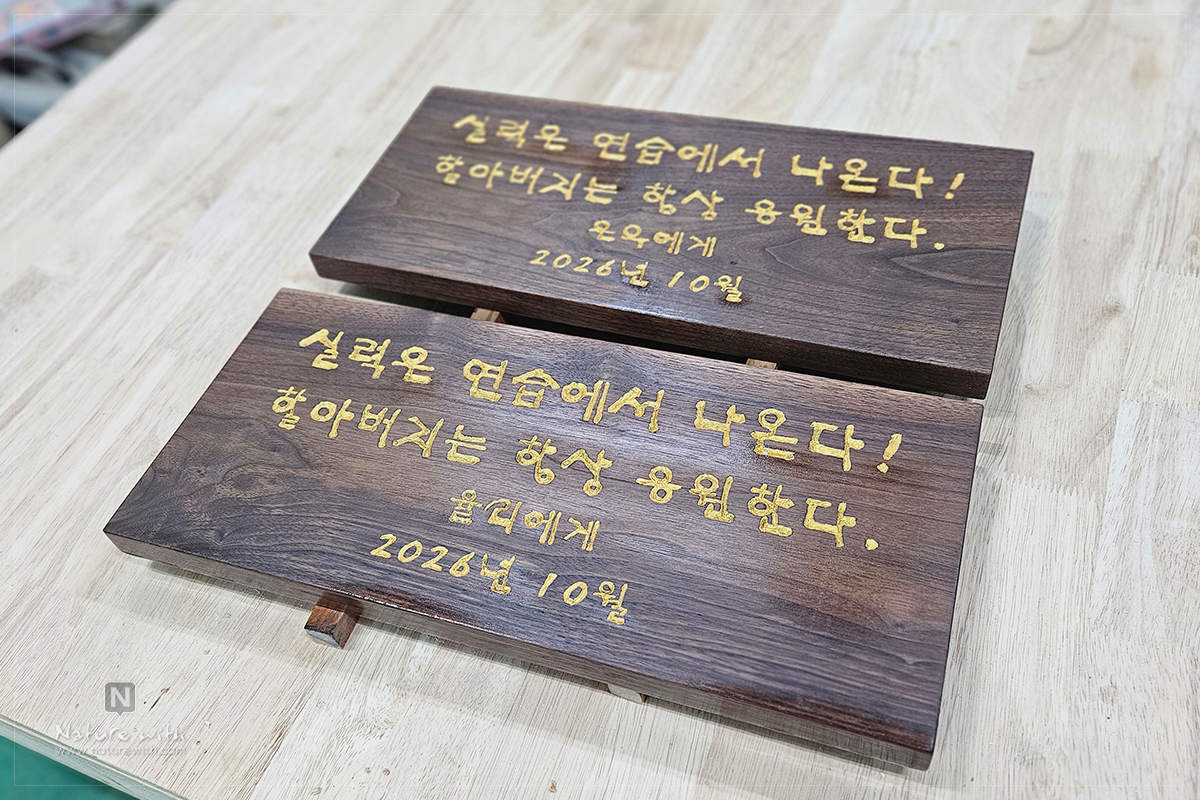 실력은 연습에서 나온다!
할아버지는 항상 응원한다.
온유에게
2026년 10월
실력은 연습에서 나온다!
할아버지는 항상 응원한다.
율리에게
2026년 10월
N
Nature with
www.naturewith.com